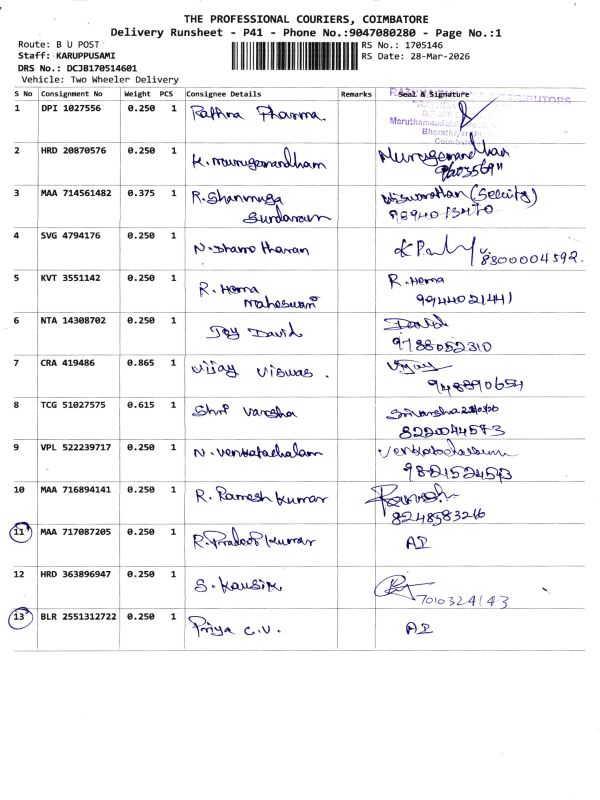 THE PROFESSIONAL COURIERS, COIMBATORE
Delivery Runsheet - P41 - Phone No.:9047080280 - Page No.:1
Route: B U POST
RS No.: 1705146
Staff: KARUPPUSAMI
RS Date: 28-Mar-2026
DRS No.: DCJB170514601
Vehicle: Two Wheeler Delivery
S No Consignment No Weight PCS Consignee Details Remarks Seal & Signature
1 DPI 1027556 0.250 1 Rathna Pharma
2 HRD 20870576 0.250 1 K. Muruganandham Muruganandhan
3 MAA 714561482 0.375 1 R. Shanmuga
Sundaram
(Security)
9894013470
4 SVG 4794176 0.250 1 N. Dharotharan
8300004592.
5 KVT 3551142 0.250 1 R. Hema
Maheswari
R. Hema
9944021441
6 NTA 14308702 0.250 1 Joy David David
9788052310
7 CRA 419486 0.865 1 Vijay Viswas. Vijay
948890654
8 TCG 51027575 0.615 1 Shri Varsha
8220044573
9 VPL 522239717 0.250 1 N. Venkatachalam
10 MAA 716894141 0.250 1 R. Ramesh Kumar Ramesh
8248583216
11 MAA 717087205 0.250 1 R. Pradeep Kumar AD
12 HRD 363896947 0.250 1 S. Kausik
7010324143
13 BLR 2551312722 0.250 1 Priya C.V. AD